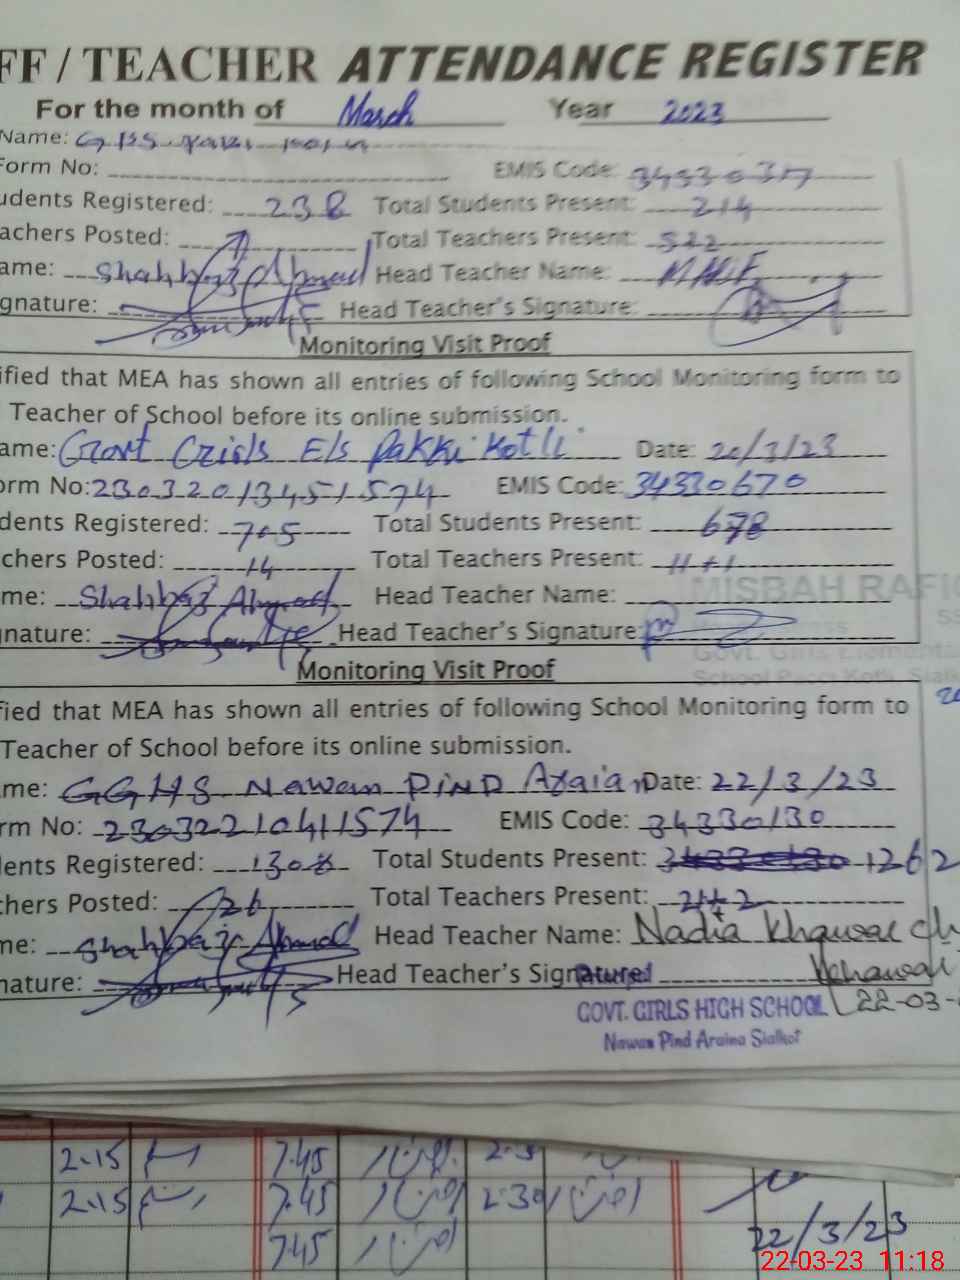 FF / TEACHER ATTENDANCE REGISTER
For the month of March Year 2023
Name: G
Form No: EMIS Code: 34330317
udents Registered: 238 Total Students Present: 214
achers Posted: 7 Total Teachers Present: 5
ame: Shahbaz Ahmad Head Teacher Name:
gnature: Head Teacher's Signature:
Monitoring Visit Proof
ified that MEA has shown all entries of following School Monitoring form to
Teacher of School before its online submission.
ame: Govt Girls E/s Pakki Kotli Date: 20/3/23
orm No: 23032013451574 EMIS Code: 34330670
dents Registered: 705 Total Students Present: 678
chers Posted: 14 Total Teachers Present: 11+1
me: Shahbaz Ahmad Head Teacher Name: MISBAH RAFIQ
nature: Head Teacher's Signature:
Govt. Girls Elementa
Monitoring Visit Proof
fied that MEA has shown all entries of following School Monitoring form to
Teacher of School before its online submission.
me: GGHS Nawan Pind Araian Date: 22/3/23
rm No: 23032210411574 EMIS Code: 34330130
ents Registered: 1308 Total Students Present: 1262
chers Posted: 26 Total Teachers Present:
me: Shahbaz Ahmad Head Teacher Name: Nadia Khawar Ch
nature: Head Teacher's Signature: Khawar
GOVT. GIRLS HIGH SCHOOL 22-03-
Nawan Pind Araina Sialkot
2.15 7.45
2.15 7.45 2.30
7.45 22/3/23
22-03-23 11:18